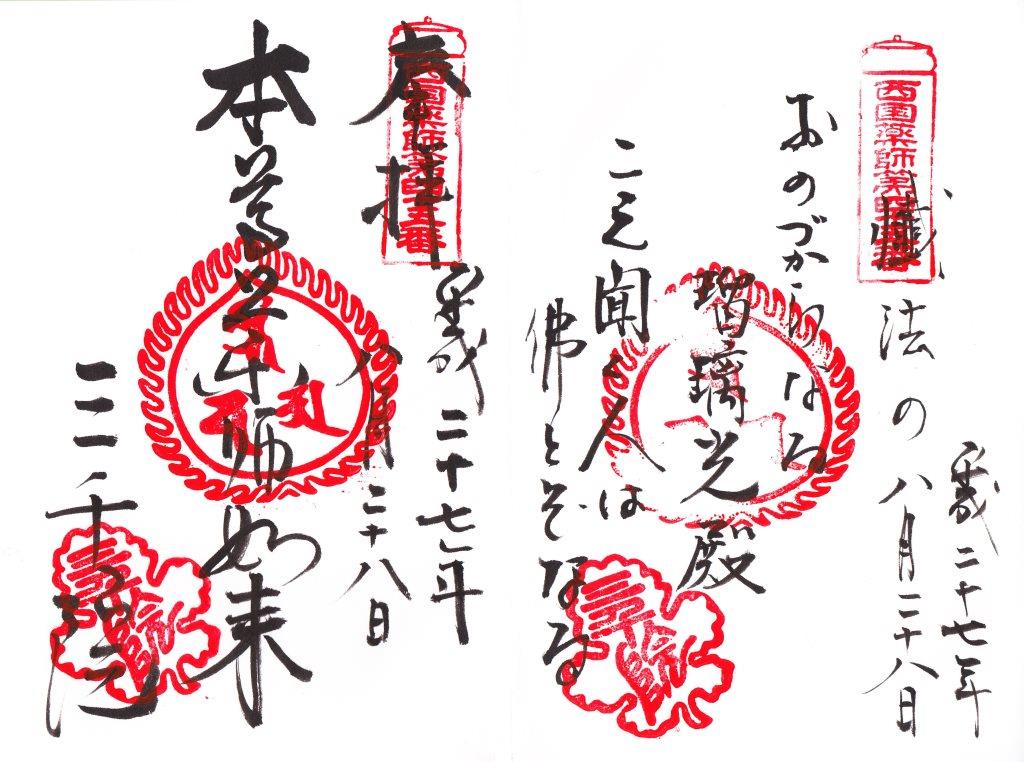 西国薬師第四十五番
平成二十七年
八月二十八日
法の
おのづから
瑠璃光殿
こえ聞く人は
佛とぞなる
西国薬師第四十五番
奉拝
平成二十七年
八月二十八日
本尊薬師如来
三千院